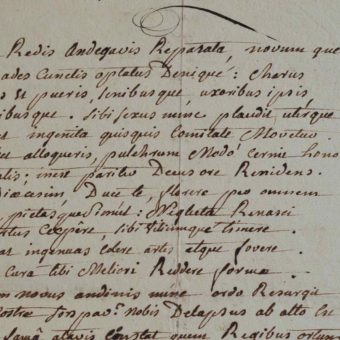 Redis Andegavis Reparata, novum que
ades Cunctis optatus Denique: Charus
et pueris, senibusque, uxoribus ipsis
ibusque. Sibi sexus nunc plaudit uterque
ingenita quisquis Comitate Movetur
alloqueris, pulchrum Modò cernis hono
alis; inest pariter Decus ore Renidens.
Diœcesim, Duce te, florere per omnem
pietasque simul: Neglecta Renasci
Cœpere, sibi vitiumque timere.
as ingenuas edere artes atque fovere.
Cura tibi Meliori Reddere forma
m novus andinis nunc ordo Resurgit
ostræ sors nobis Delapsus ab alto es
famâ atavis constat quem Regibus ortum